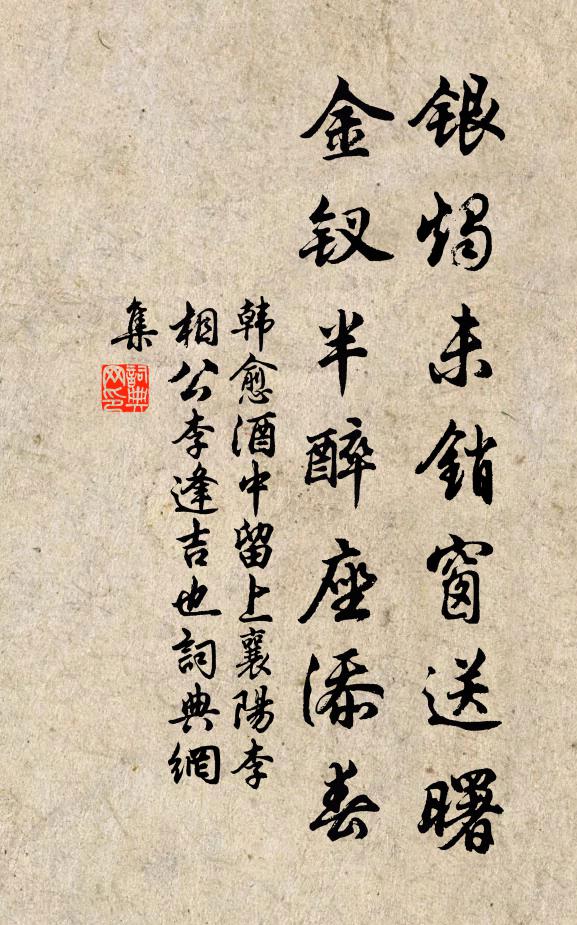 銀燭未銷窗送曙
金釵半醉座添春
韩愈酒中留上襄陽李
相公李逢吉也詞典網
集
詞典
网印